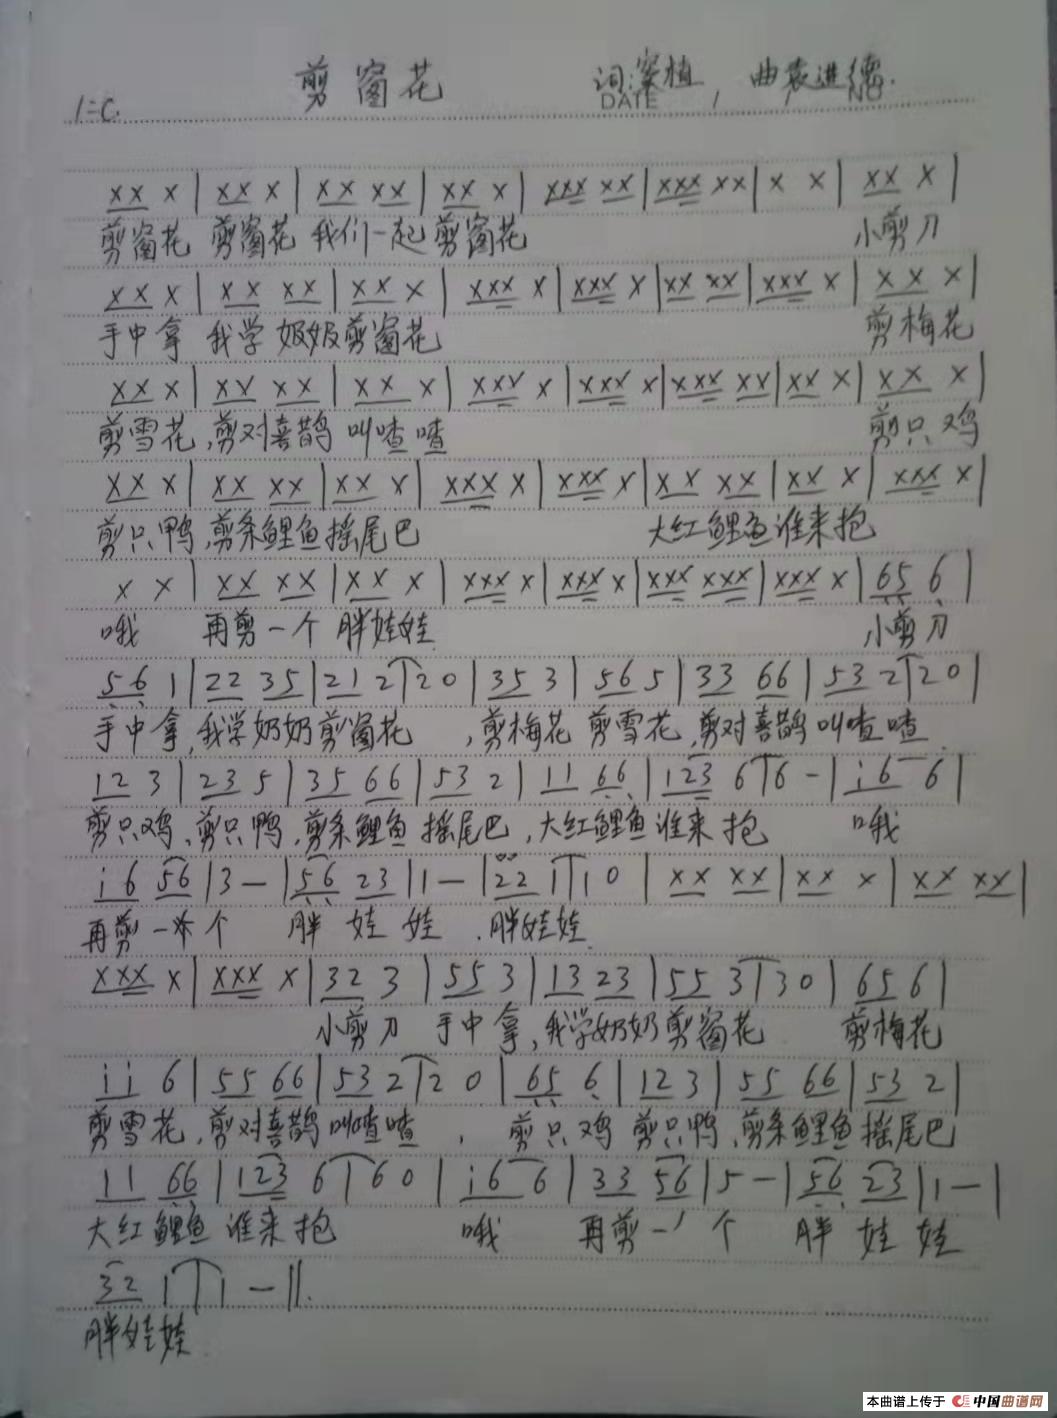 剪窗花 词:案植 曲袁进德.
1=C. DATE / / NO
xx x | xx x | xx xx | xx x | xxx xx | xxx xx | x x | xx x |
剪窗花 剪窗花 我们一起 剪窗花 小剪刀
xx x | xx xx | xx x | xxx x | xxx x | xx xx | xxx x | xx x |
手中拿 我学奶奶剪窗花 剪梅花
xx x | xx xx | xx x | xxx x | xxx x | xxx xx | xx x | xx x |
剪雪花,剪对喜鹊 叫喳喳 剪只鸡
xx x | xx xx | xx x | xxx x | xxx x | xx xx | xx x | xxx x |
剪只鸭,剪条鲤鱼摇尾巴 大红鲤鱼谁来抱
x x | xx xx | xx x | xxx x | xxx x | xxx xxx | xxx x | 65 6 |
哦 再剪一个 胖娃娃 小剪刀
56 1 | 22 35 | 21 2 | 2 0 | 35 3 | 56 5 | 33 66 | 53 2 | 2 0 |
手中拿,我学奶奶剪窗花 ,剪梅花 剪雪花,剪对喜鹊 叫喳喳
12 3 | 23 5 | 35 66 | 53 2 | 11 66 | 123 6 | 6 - | i6 6 |
剪只鸡,剪只鸭,剪条鲤鱼 摇尾巴,大红鲤鱼 谁来 抱 哦
i6 56 | 3 - | 56 23 | 1 - | 22 1 | 1 0 | xx xx | xx x | xx xx |
再剪一个 胖 娃 娃 .胖娃娃
xxx x | xxx x | 32 3 | 55 3 | 13 23 | 55 3 | 3 0 | 65 6 |
小剪刀 手中拿,我学奶奶剪窗花 剪梅花
ii 6 | 55 66 | 53 2 | 2 0 | 65 6 | 12 3 | 55 66 | 53 2 |
剪雪花,剪对喜鹊 叫喳喳 , 剪只鸡 剪只鸭,剪条鲤鱼 摇尾巴
11 66 | 123 6 | 6 0 | i6 6 | 33 56 | 5 - | 56 23 | 1 - |
大红鲤鱼 谁来抱 哦 再剪一 个 胖 娃 娃
32 1 | 1 - ||.
胖娃娃
本曲谱上传于 中国曲谱网